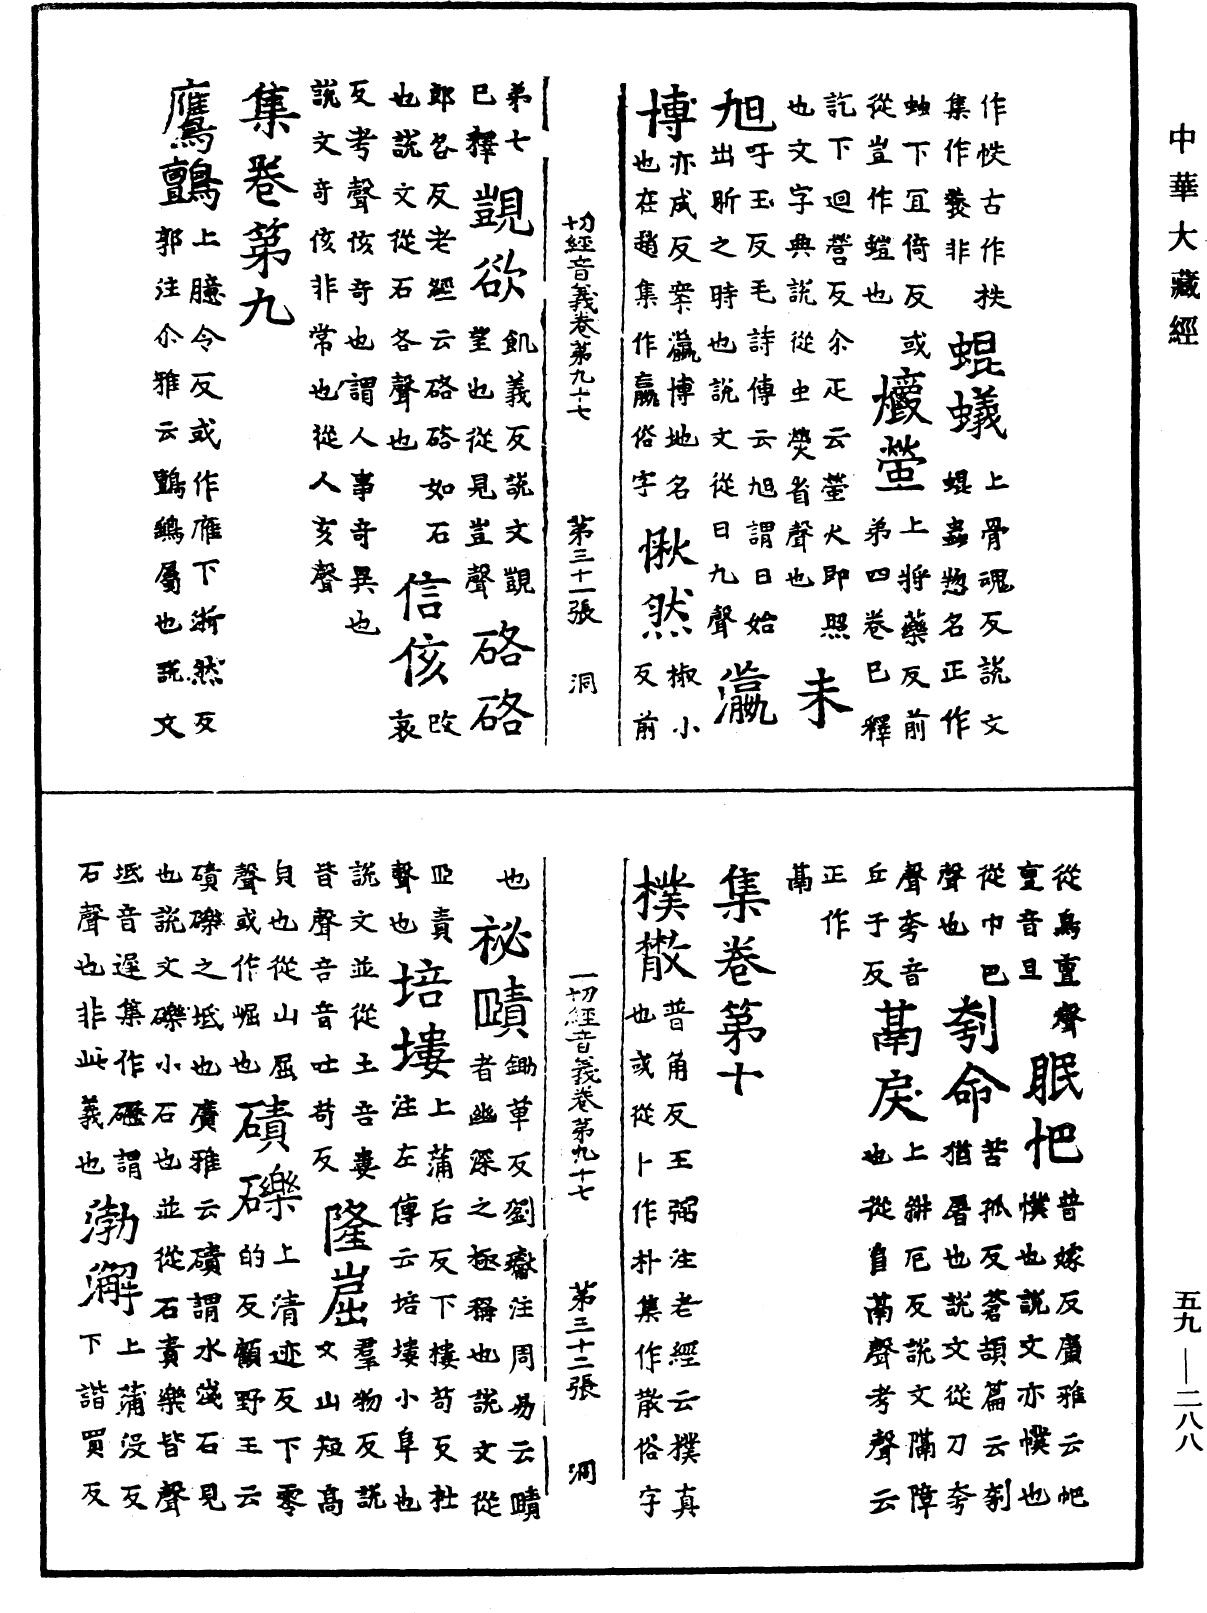 中華大藏經
作怢古作抶
集作䘍非
蜫蟻
上骨魂反説文
蜫蟲惣名正作
䖝下冝倚反或
從豈作螘也
爝螢
上將藥反前
弟四卷已釋
訖下迴營反尒疋云螢火即照
也文字典説從虫熒省聲也
未
旭
吁玉反毛詩傳云旭謂日始
出昕之時也説文從日九聲
瀛
博
亦成反案瀛博地名
也在趙集作嬴俗字
愀然
椒小
反前
切經音義卷第九十七 第三十一張 洞
弟七
已釋
覬欲
飢義反説文覬
望也從見豈聲
硌硌
郎各反老經云硌硌如石
也説文從石各聲也
信侅
改
哀
反考聲侅奇也謂人事奇異也
説文奇侅非常也從人亥聲
集卷第九
鷹鸇
上臆令反或作䧹下浙然反
郭注尒雅云鸇鷂屬也説文
從鳥亶聲
亶音旦
眠帊
普嫁反廣雅云帊
幞也説文亦幞也
從巾巴
聲也
刳命
苦孤反蒼頡篇云刳
猶屠也説文從刀夸
聲夸音
丘于反
鬲戾
上耕厄反説文隔障
也從𨸏鬲聲考聲云
正作
鬲
集卷第十
樸散
普角反王弼注老經云樸真
也或從卜作朴集作散俗字
一切經音義卷第九十七 第三十二張 洞
也
秘賾
鋤革反劉瓛注周易云賾
者幽深之極稱也説文從
𦣞責
聲也
培塿
上蒲后反下樓苟反杜
注左傳云培塿小阜也
説文並從土咅婁
皆聲咅音吐苟反
隆崫
羣物反説
文山短高
㒵也從山屈
聲或作崛也
磧礫
上清迹反下零
的反顧野王云
磧礫之坻也廣雅云磧謂水淺石見
也説文礫小石也並從石責樂皆聲
坻音遲集作謂
石聲也非此義也
渤澥
上蒲没反
下諧買反
五九—二八八